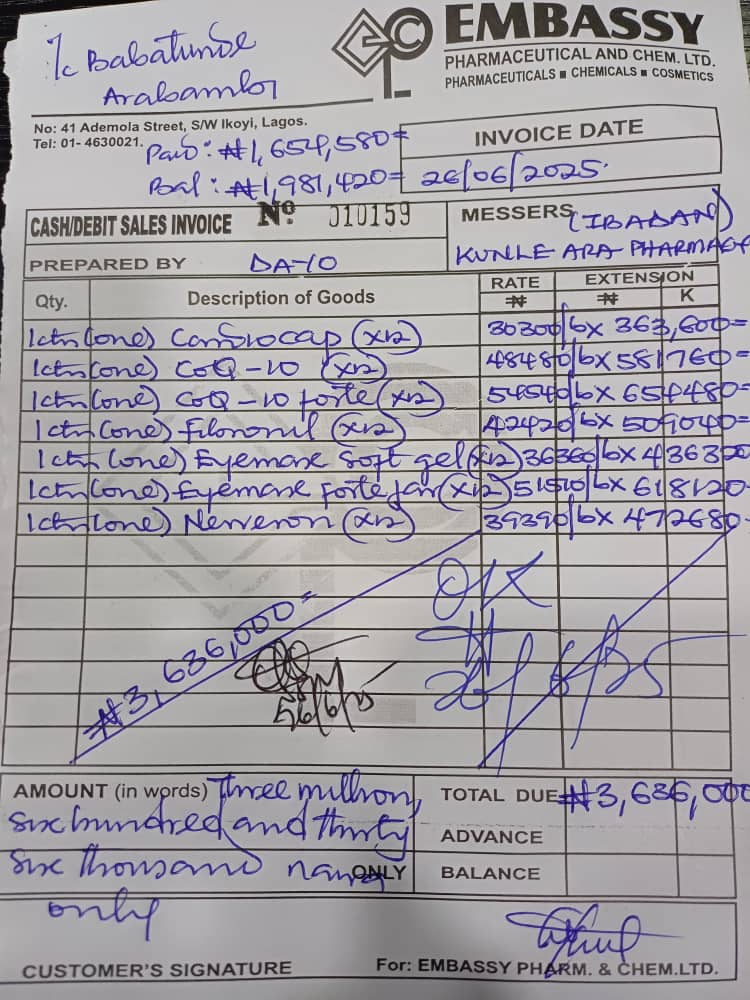 I/c Babatunde
Arabambi
EMBASSY
PHARMACEUTICAL AND CHEM. LTD.
PHARMACEUTICALS ■ CHEMICALS ■ COSMETICS
No: 41 Ademola Street, S/W Ikoyi, Lagos.
Tel: 01- 4630021.
Paid: ₦1,654,580=
Bal: ₦1,981,420=
INVOICE DATE
26/06/2025
CASH/DEBIT SALES INVOICE No. 010159
MESSERS (IBADAN)
KUNLE ARA PHARMACY
PREPARED BY DAYO
Qty. Description of Goods RATE ₦ EXTENSION ₦ K
1ctn(one) Cardiocap (x12) 30300/bx 363,600=
1ctn(one) CoQ-10 (x12) 48480/bx 581760=
1ctn(one) CoQ-10 forte (x12) 54540/bx 654480=
1ctn(one) Filoronil (x12) 42420/bx 509040=
1ctn(one) Eyemax soft gel (x12) 36360/bx 436320
1ctn(one) Eyemax forte jar (x12) 51510/bx 618120
1ctn(one) Nerveron (x12) 39390/bx 472680
₦3,636,000=
OK
AMOUNT (in words) Three million,
six hundred and thirty
six thousand naira ONLY
only
TOTAL DUE ₦3,636,000
ADVANCE
BALANCE
CUSTOMER'S SIGNATURE
For: EMBASSY PHARM. & CHEM.LTD.